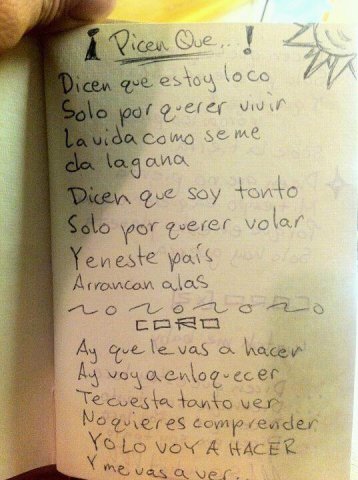 ¡Dicen Que...!
Dicen que estoy loco
Solo por querer vivir
La vida como se me
da la gana
Dicen que soy tonto
Solo por querer volar
Y en este país
Arrancan alas
CORO
Ay que le vas a hacer
Ay voy a enloquecer
Te cuesta tanto ver
No quieres comprender
YO LO VOY A HACER
Y me vas a ver...